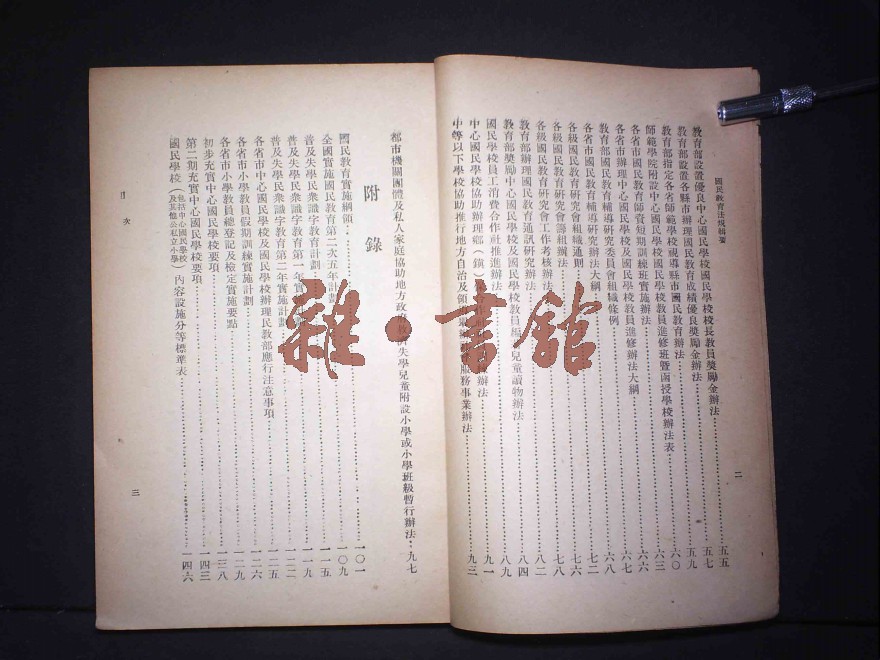 國民教育法規輯要
二
教育部設置優良中心國民學校國民學校校長教員獎勵金辦法 五五
教育部設置各縣市辦理國民教育成績優良獎勵金辦法 五七
教育部指定各省師範學校視導縣市國民教育辦法 五九
師範學院附設中心國民學校國民學校教員進修班暨函授學校辦法表 六〇
各省市國民教育師資短期訓練班實施辦法 六三
各省市辦理中心國民學校及國民學校教員進修辦法大綱 六六
教育部國民教育輔導研究委員會組織條例 六七
各省市國民教育輔導研究辦法大綱 六八
各級國民教育研究會組織通則 七二
各級國民教育研究會籌組辦法 七六
各級國民教育研究會工作考核辦法 七八
教育部辦理國民教育通訊研究辦法 八二
教育部獎勵中心國民學校及國民學校教員 兒童讀物辦法 八四
國民學校員工消費合作社推進辦法 八九
中心國民學校協助辦理鄉(鎮) 辦法 九一
中等以下學校協助推行地方自治及 服務事業辦法 九三
都市機關團體及私人家庭協助地方政府 失學兒童附設小學或小學班級暫行辦法 九七
附錄
國民教育實施綱領 一〇一
全國實施國民教育第二次五年計劃 一〇九
普及失學民衆識字教育計劃 一一五
普及失學民衆識字教育第一年實施計劃 一一九
普及失學民衆識字教育第二年實施計劃 一二二
各省市中心國民學校及國民學校辦理民教部應行注意事項 一二五
各省市小學教員假期訓練實施計劃 一二六
各省市小學教員總登記及檢定實施要點 一二九
初步充實中心國民學校要項 一三八
第二期充實中心國民學校要項 一四三
國民學校(包括中心國民學校及其他公私立小學)內容設施分等標準表 一四六
目次
三
雜·書館